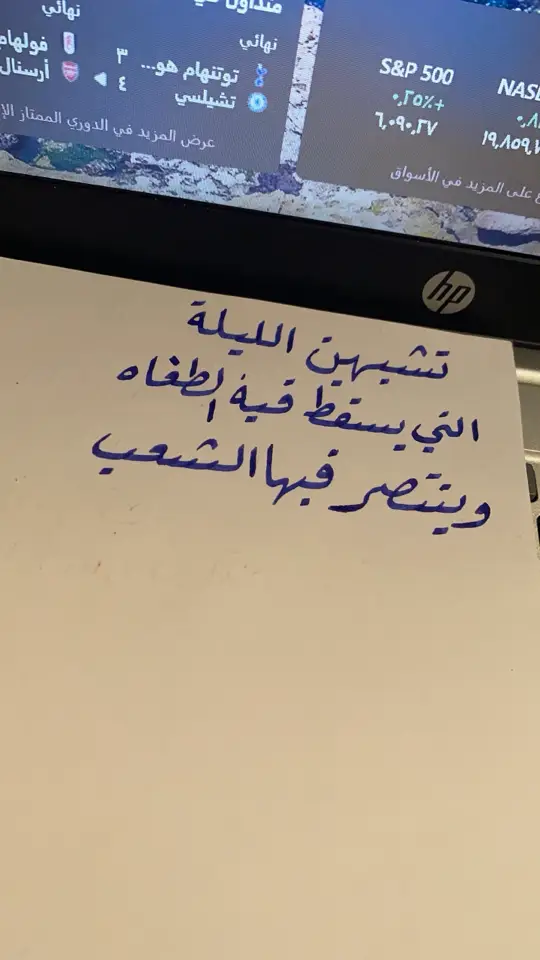 نهائي
نهائي
فولهام
أرسنال
توتنهام هو... ٣
تشيلسي ٤
عرض المزيد في الدوري الممتاز الإ
S&P 500
+٠,٢٥٪
٦,٠٩٠,٢٧
NASD
٠,٨
١٩,٨٥٩,٧
على المزيد في الأسواق
hp
تشبهين الليلة
التي يسقط فية الطغاه
وينتصر فيها الشعب